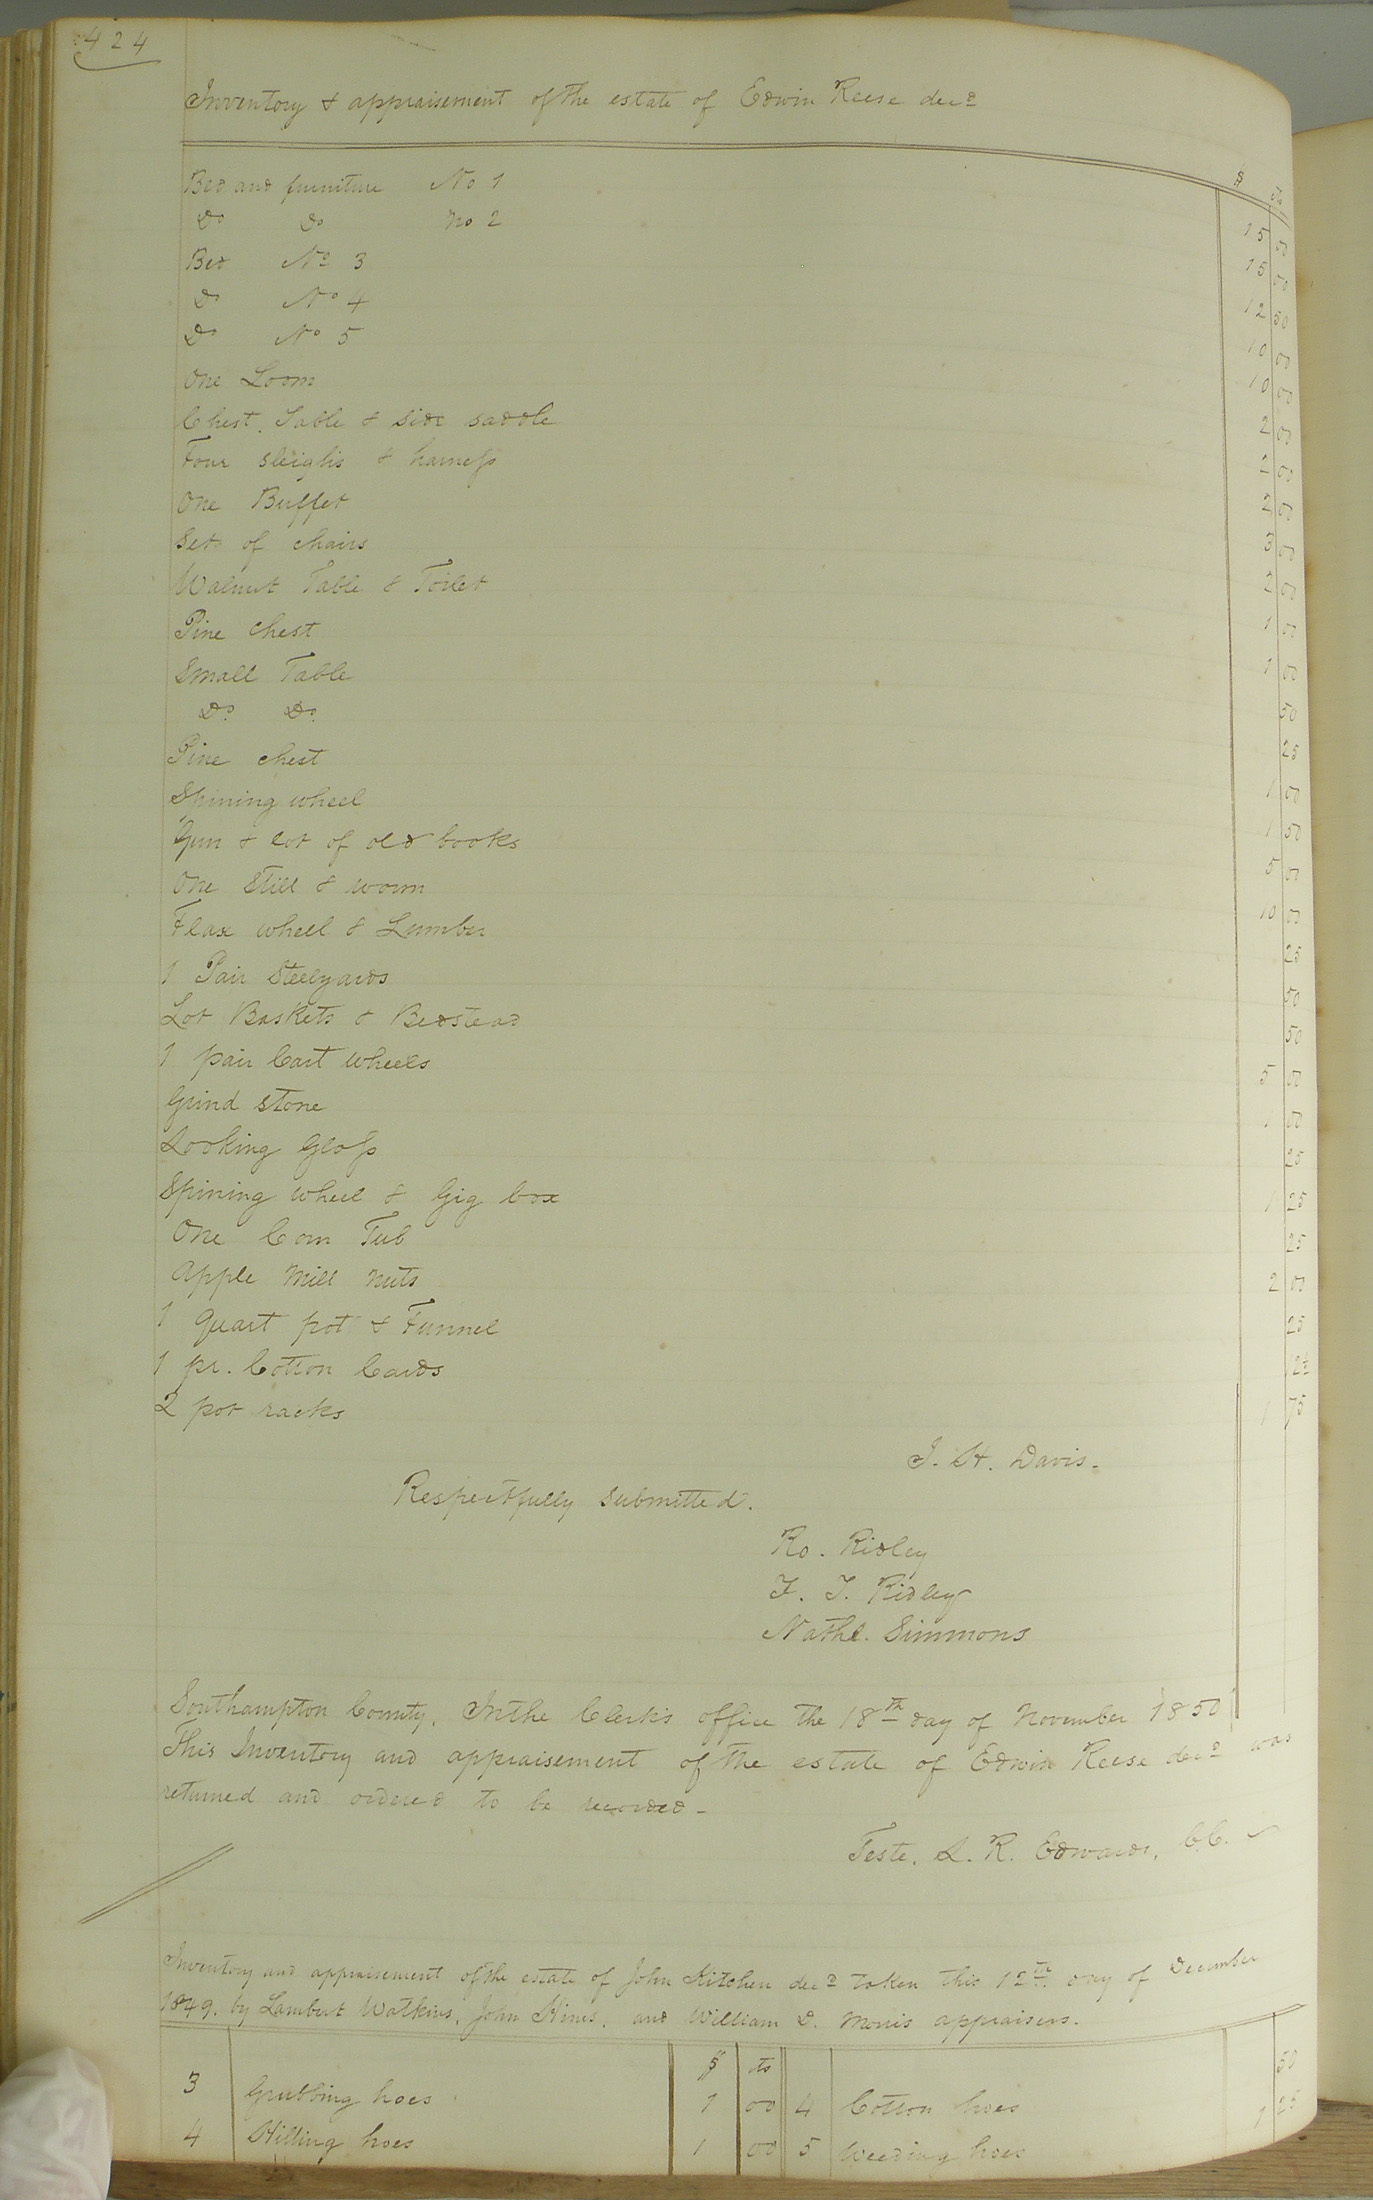 424
Inventory & appraisement of the estate of Edwin Reese decd
$ cts
Bed and furniture No 1 15 00
Do Do No 2 15 00
Bed No 3 12 50
Do No 4 10 00
Do No 5 10 00
One Loom 2 00
Chest, Table & side saddle 2 00
Four sleighs & harness 2 00
One Buffet 3 00
Set of chairs 2 00
Walnut Table & Toilet 1 00
Pine chest 1 00
Small Table 50
Do Do 25
Pine chest 1 00
Spining wheel 1 50
Gun & lot of old books 5 00
One Still & worm 10 00
Flax wheel & Lumber 25
1 Pair Steelyards 50
Lot Baskets & Bedstead 50
1 pair Cart wheels 5 00
Grind stone 1 00
Looking Glass 25
Spining wheel & Gig box 1 25
One Corn Tub 25
Apple Mill Nuts 2 00
1 Quart pot & Funnel 25
1 pr. Cotton Cards 12½
2 pot racks 1 75
J. H. Davis.
Respectfully submitted.
Ro. Ridley
F. T. Ridley
Nathl. Simmons
Southampton County, In the Clerk's office the 18th day of November 1850
This Inventory and appraisement of the estate of Edwin Reese decd was
returned and ordered to be recorded -
Teste, L. R. Edwards, C.C.
Inventory and appraisement of the estate of John Kitchen decd taken this 12th day of December
1849. by Lambert Watkins, John Hines, and William D. Morris appraisers.
$ cts
3 Grubbing hoes 1 00 4 Cotton hoes 50
4 Hilling hoes 1 00 5 Weeding hoes 1 25